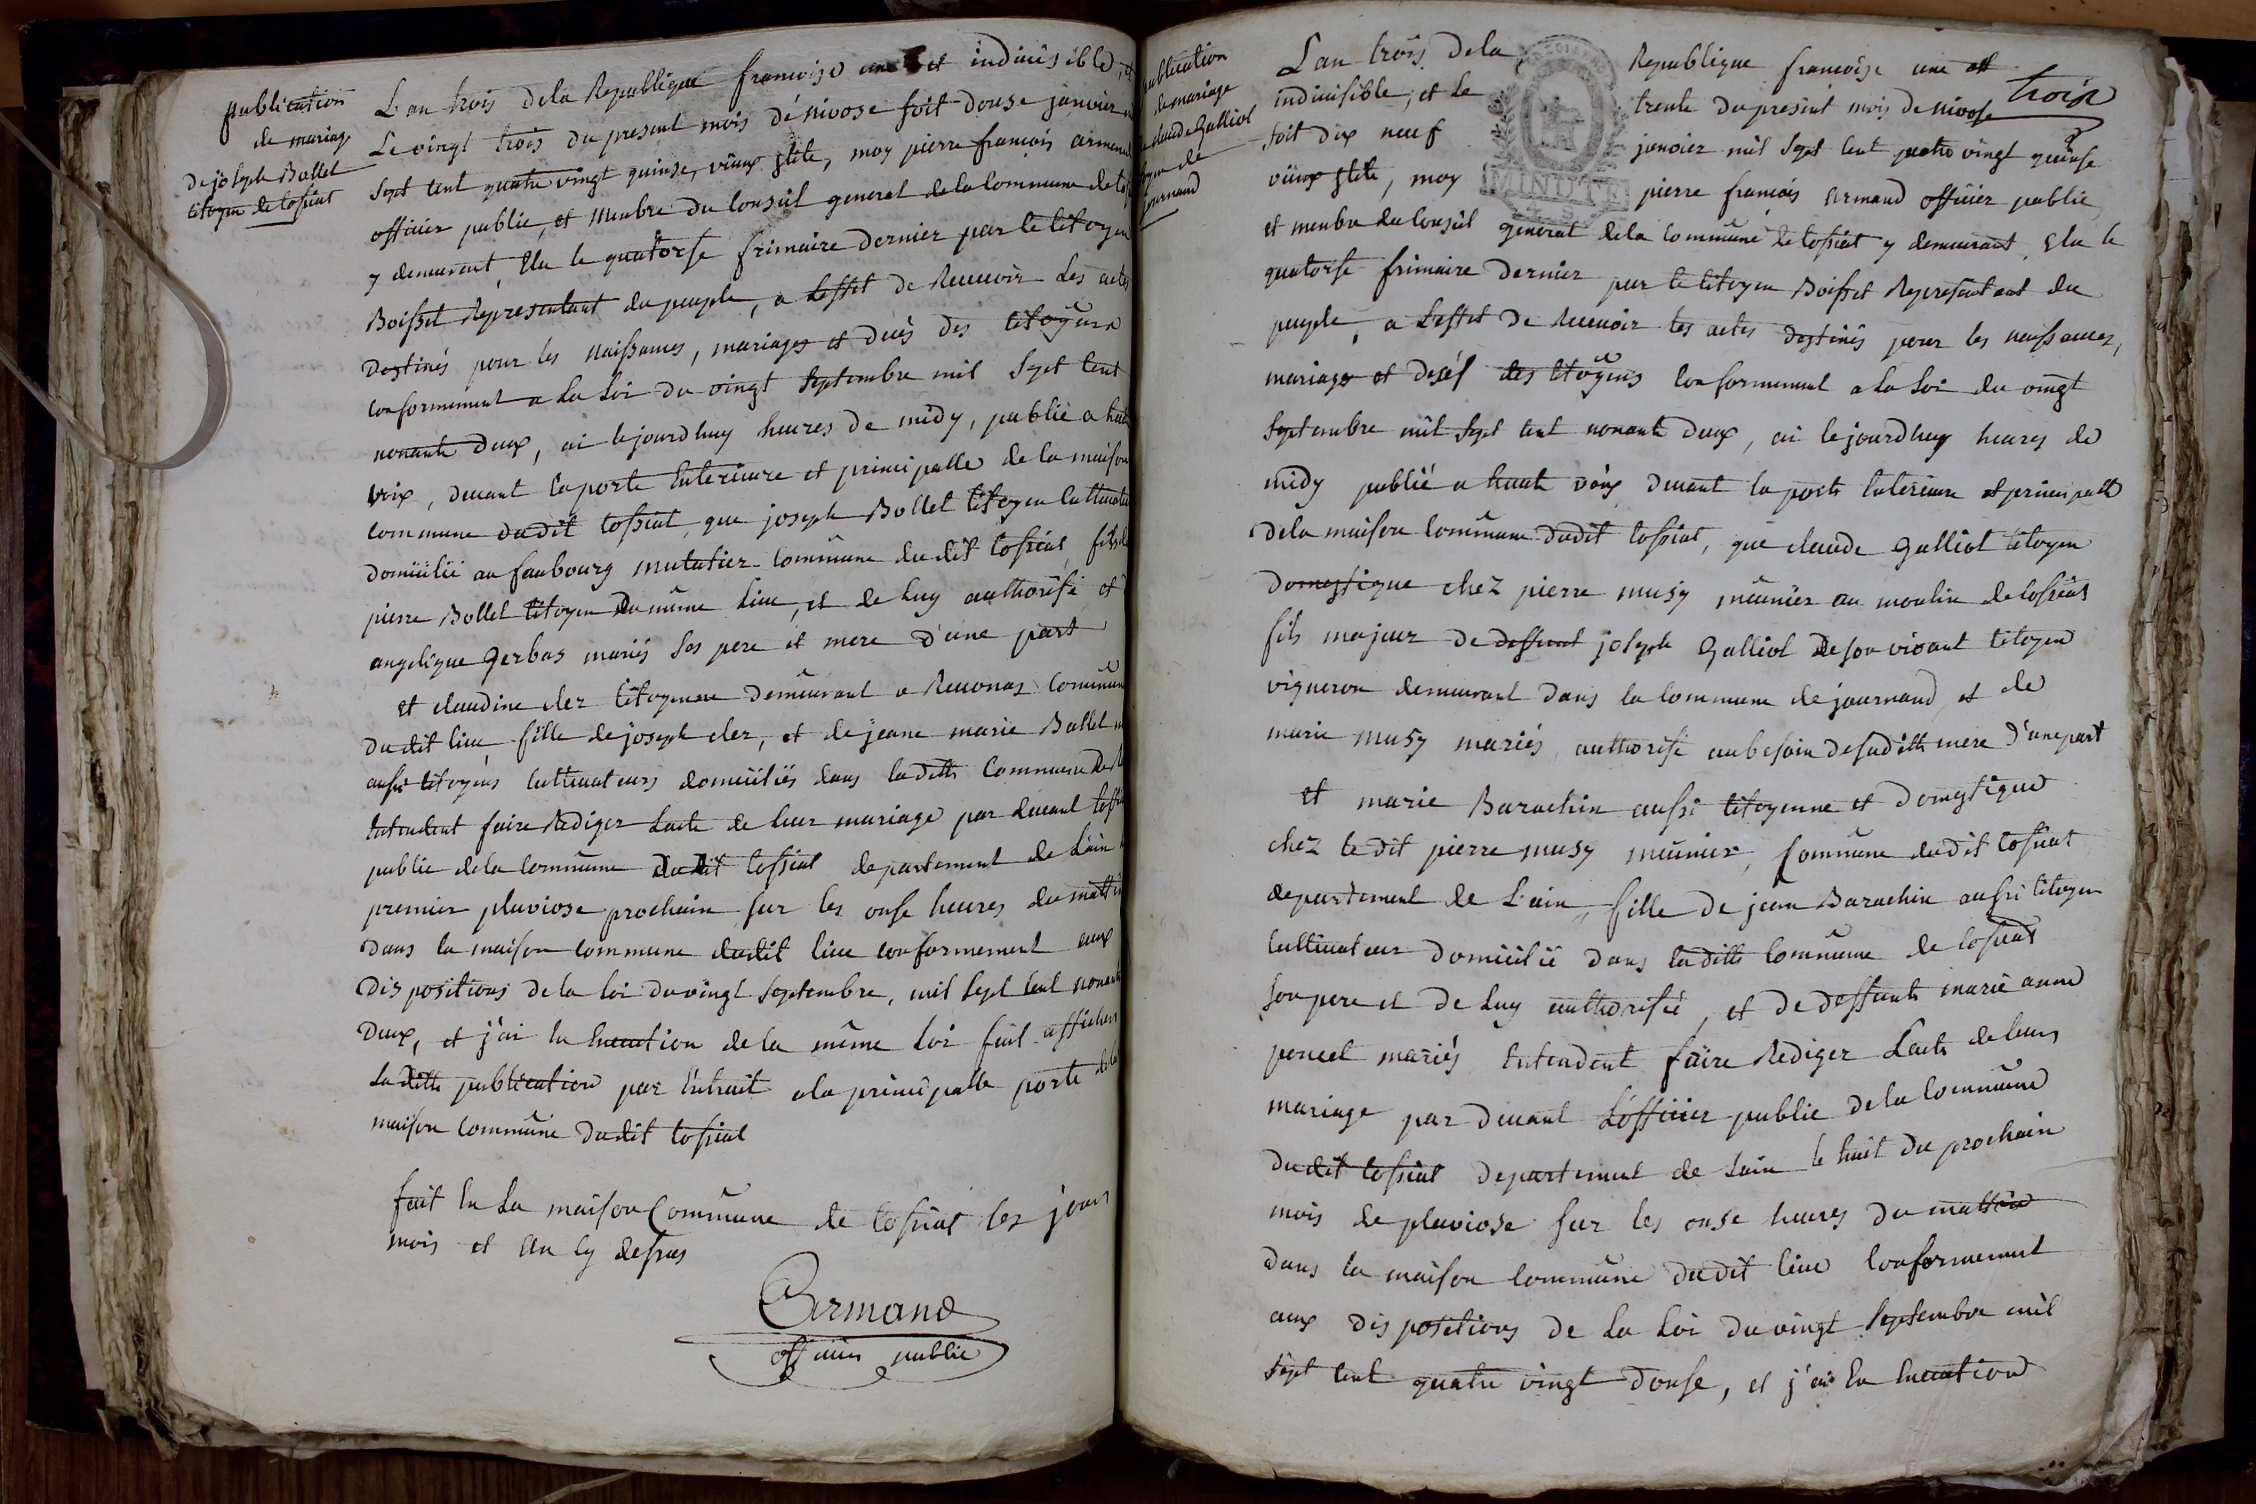 publication
de mariage
de joseph Bollet
citoyen de tossiat
L'an trois de la Republique francoise une et indiuisible, et
Le vingt trois du present mois de nivose soit douse janvier
sept cent quatre vingt quinse, vieux stile, moy pierre francois armand
officier public, et menbre du Conseil general de la Commune de
y demeurant, Elu le quatorse frimaire dernier par le citoyen
Boisset Representant du peuple, a Leffet de Receuoir Les actes
Destinés pour les naissances, mariages et décés des citoyens
conformement a La Loi du vingt septembre mil sept cent
nonante Deux, ai lejourdhuy heures de midy, publié a haute
voix, deuant la porte Exterieure et principalle de la maison
commune dudit tossiat, que joseph Bollet citoyen Cultivateur
domicilié au faubourg mutatier Commune du dit tossiat, fils de
pierre Bollet citoyen du même Lieu, et de Luy authorisé et
angelique Gerbas mariés ses pere et mere d'une part
et claudine clez citoyenne demeurant a Reuonas Commune
du dit lieu fille de joseph clez, et de jeane marie Ballet
aussi citoyens Cultiuateurs domiciliés dans laditte Commune de
Entendent faire Rediger Lacte de leur mariage par deuant
public de la Commune dudit tossiat departement de L'ain
premier pluviose prochain sur les onse heures du mattin
dans la maison commune dudit lieu conformement aux
Dispositions de la loi du vingt septembre, mil sept cent nonante
Deux, et j'ai En Execution de la même Loi fait afficher
La ditte publication par Extrait a la principalle porte de la
maison Commune dudit tossiat
fait En La maison Commune de tossiat les jour
mois et An cy dessus
Armand
officier public
publication
de mariage
claude Galliot
de
journaud
trois
L'an trois de la Republique francoise une et
indiuisible, et Le trente du present mois de nivose
soit dix neuf janvier mil sept cent quatre vingt quinse
vieux stile, moy pierre francois Armand officier public,
et menbre du Conseil general de la Commune de tossiat y demeurant, Elu le
quatorse frimaire dernier par le citoyen Boisset Representant du
peuple, a L'effet de Receuoir les actes destinés pour les naissances,
mariages et decés des citoyens Conformement a La Loi du vingt
septembre mil sept cent nonante Deux, ai lejourdhuy heures de
midy publié a haute voix deuant la porte Exterieure et principalle
de la maison Commune dudit tossiat, que claude Galliot citoyen
Domestique chez pierre musy meunier au moulin de tossiat
fils majeur de deffunt joseph Galliot de son vivant citoyen
vigneron demeurant dans la Commune de journaud et de
marie musy mariés, authorisé au besoin de sa ditte mere d'une part
et marie Barachin aussi citoyenne et domestique
chez le dit pierre musy meunier, Commune dudit tossiat
departement de L'ain, fille de jean Barachin aussi citoyen
Cultiuateur domicilié dans laditte Commune de tossiat
son pere et de Luy authorisée, et de deffunte marie anne
poncet mariés Entendent faire Rediger L'acte de leur
mariage par deuant L'officier public de la Commune
dudit tossiat departement de Lain le huit du prochain
mois de pluviose sur les onse heures du mattin
dans la maison Commune dudit lieu Conformement
aux dispositions de La Loi du vingt septembre mil
sept cent quatre vingt douse, et j'ai En Execution
MINUTE